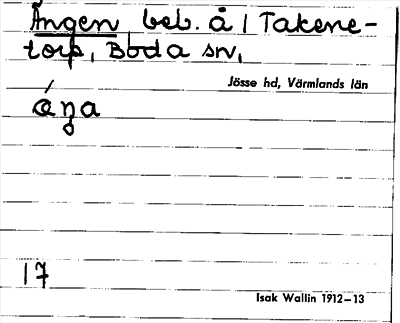 Ängen beb. å 1 Takene-
torp, Boda sn,
Jösse hd, Värmlands län
ǽŋa
17
Isak Wallin 1912–13